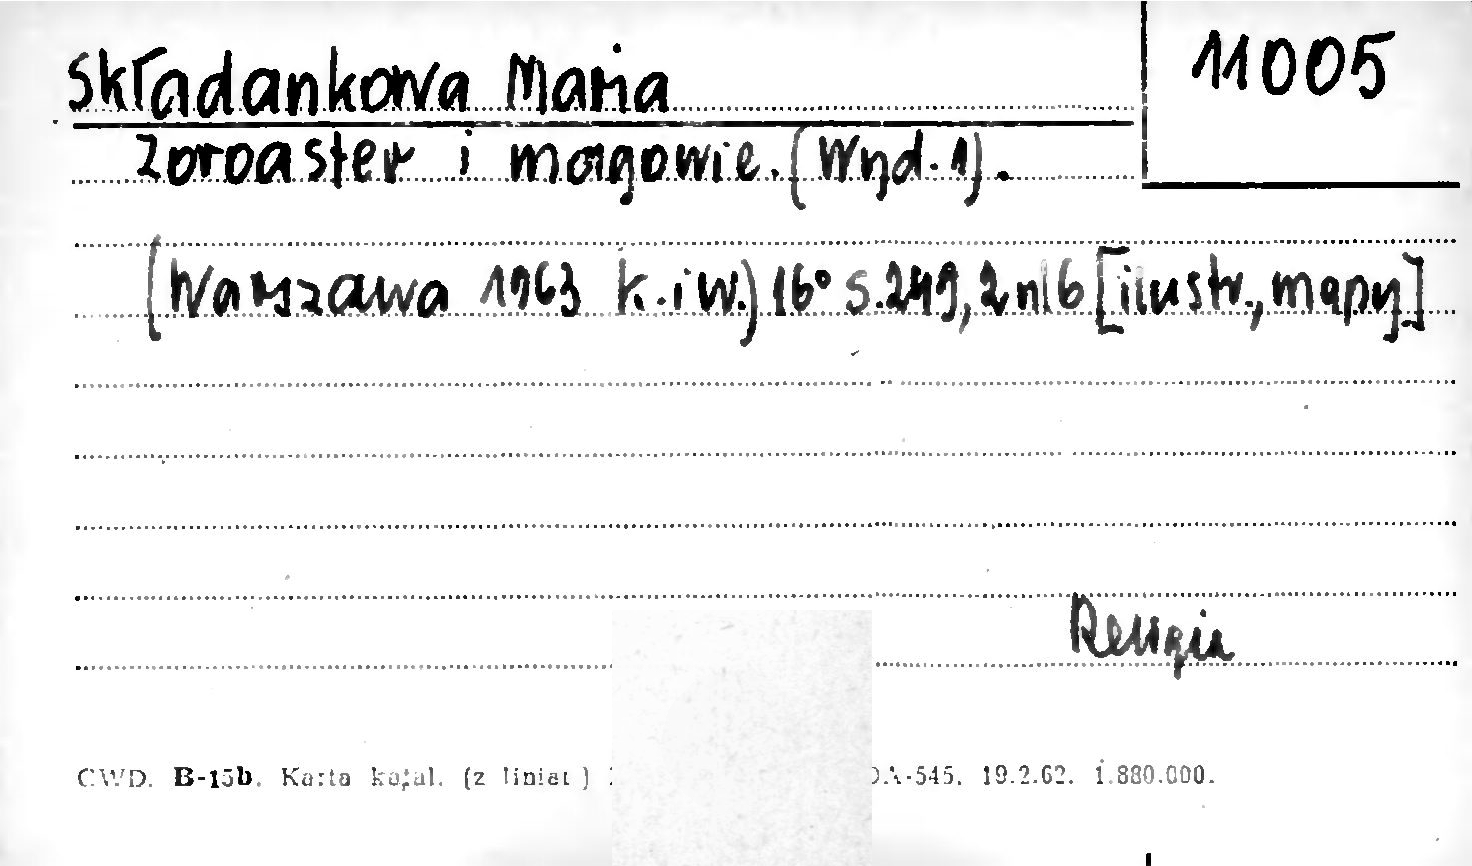 Składankowa Maria
11005
Zoroaster i magowie. (Wyd. 1).
(Warszawa 1963 K. i W.) 16° s. 249, 2 nlb [ilustr., mapy]
Religia
CWD. B-15b. Karta katal. (z liniat.) DA-545. 19.2.62. 1.880.000.